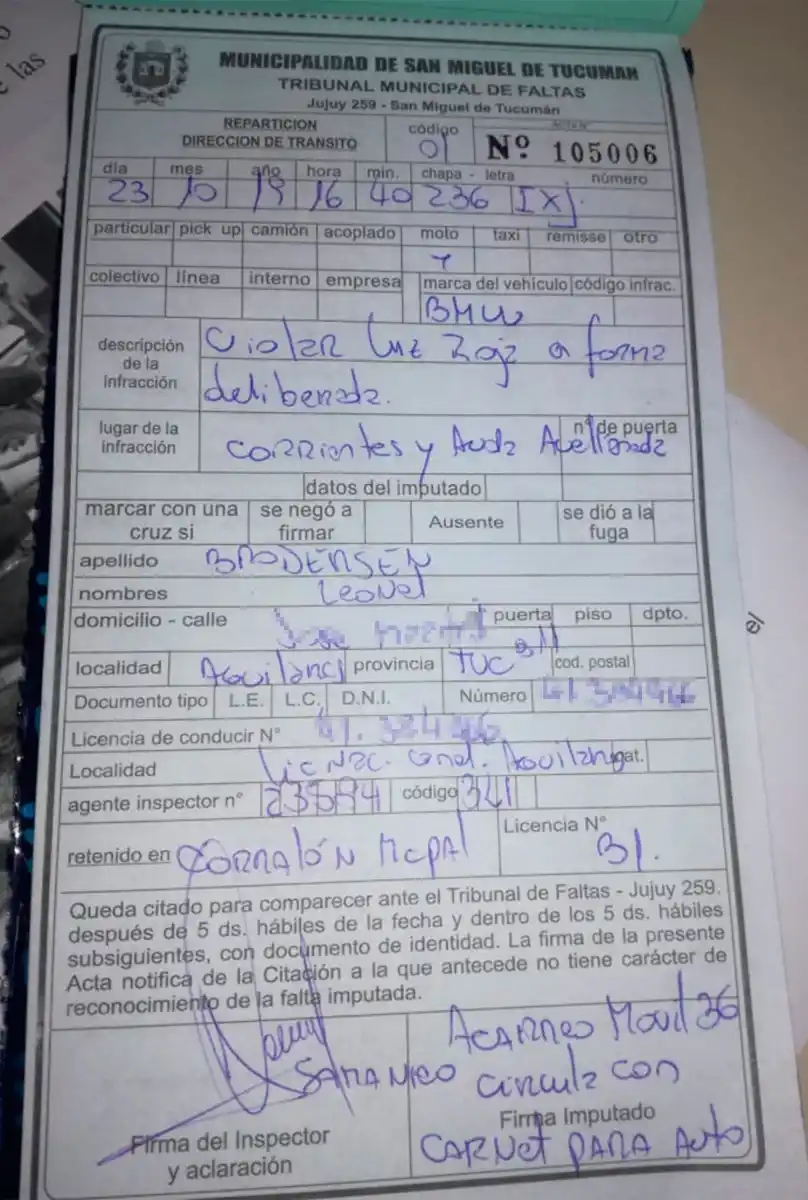 las
MUNICIPALIDAD DE SAN MIGUEL DE TUCUMAN
TRIBUNAL MUNICIPAL DE FALTAS
Jujuy 259 - San Miguel de Tucumán
REPARTICION
DIRECCION DE TRANSITO
código
01
Nº 105006
día mes año hora min. chapa - letra número
23 10 19 16 40 236 IXJ.
particular pick up camión acoplado moto taxi remisse otro
colectivo línea interno empresa marca del vehículo código infrac.
BMW
descripción de la infracción
Violar luz Roja a forma
deliberada.
lugar de la infracción
nº de puerta
CORRIENTES y Avda Avellaneda
datos del imputado
marcar con una cruz si se negó a firmar Ausente se dió a la fuga
apellido BRODERSEN
nombres Leonel
domicilio - calle puerta piso dpto.
localidad Aguilares provincia TUC cod. postal
Documento tipo L.E. L.C. D.N.I. Número
Licencia de conducir N°
Localidad Lic Nac. Cond. Aguilares cat.
agente inspector nº código 341
retenido en CORRALÓN Mcpal Licencia Nº
31.
Queda citado para comparecer ante el Tribunal de Faltas - Jujuy 259.
después de 5 ds. hábiles de la fecha y dentro de los 5 ds. hábiles
subsiguientes, con documento de identidad. La firma de la presente
Acta notifica de la Citación a la que antecede no tiene carácter de
reconocimiento de la falta imputada.
ACARREO Movil 36
circula con
Firma Imputado
CARNET PARA Auto
Firma del Inspector
y aclaración
el